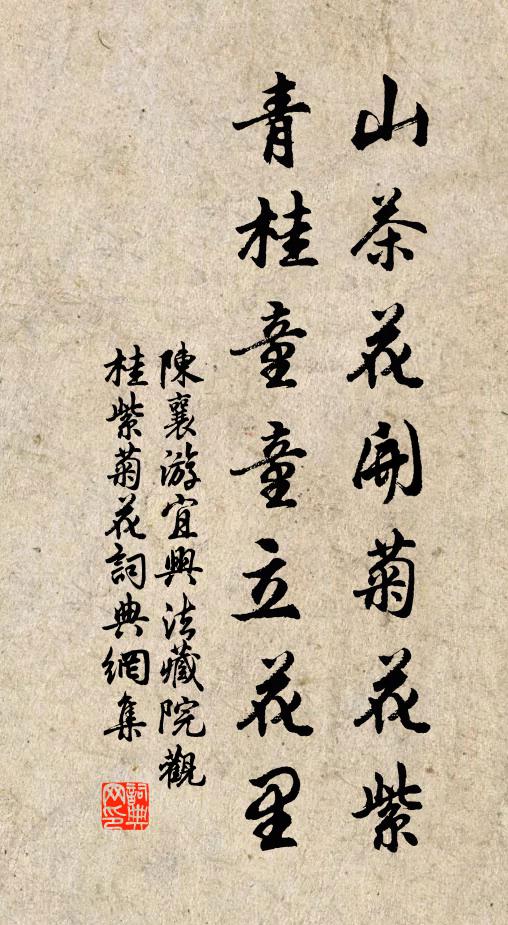 山茶花開菊花紫
青桂童童立花里
陳襄游宜興法藏院觀
桂紫菊花詞典網集
詞典网印